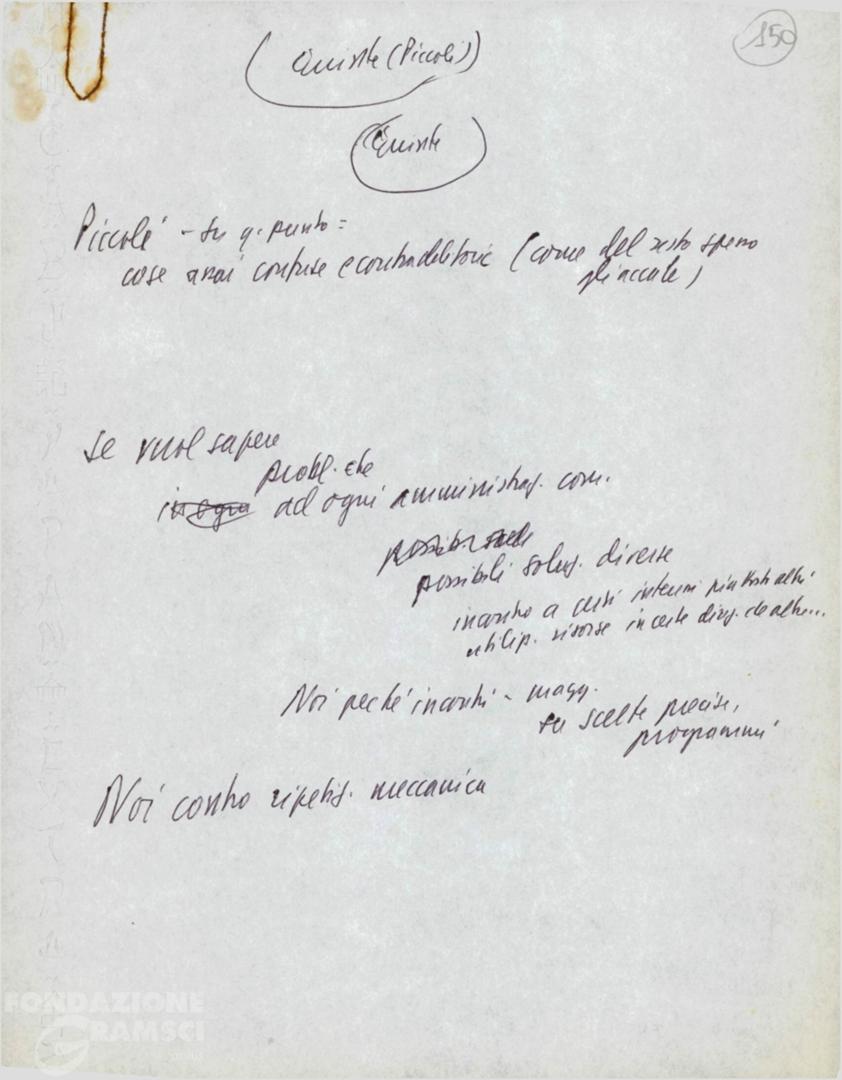 150
Giunte (Piccoli)
Giunte
Piccoli - su q. punto =
cose assai confuse e contraddittorie (come del resto spesso
gli accade)
Se vuol sapere
probl. che
in ogni ad ogni amministraz. com.
possib. sol
possibili soluz. diverse
incontro a certi interessi piuttosto altri
utilizz. risorse in certe direz. che altre...
Noi perché incontri - magg.
su scelte precise,
programmi
Noi contro ripetiz. meccanica
FONDAZIONE
GRAMSCI